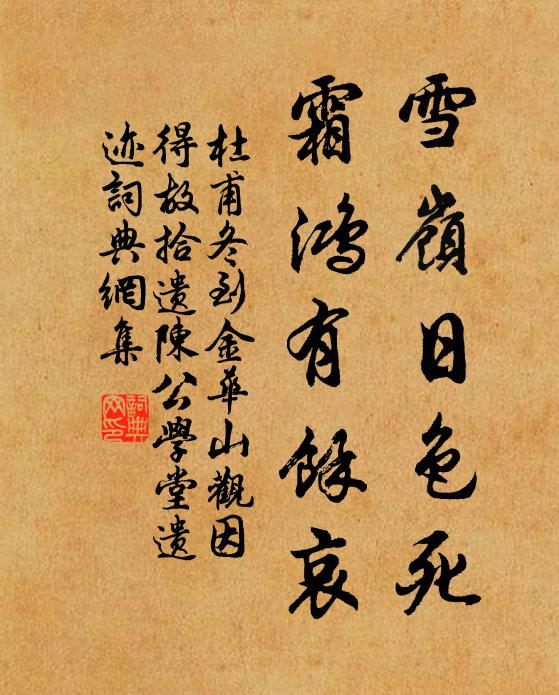 雪嶺日色死
霜鴻有餘哀
杜甫冬到金華山觀因
得故拾遺陳公學堂遺
迹詞典網集
詞典网印